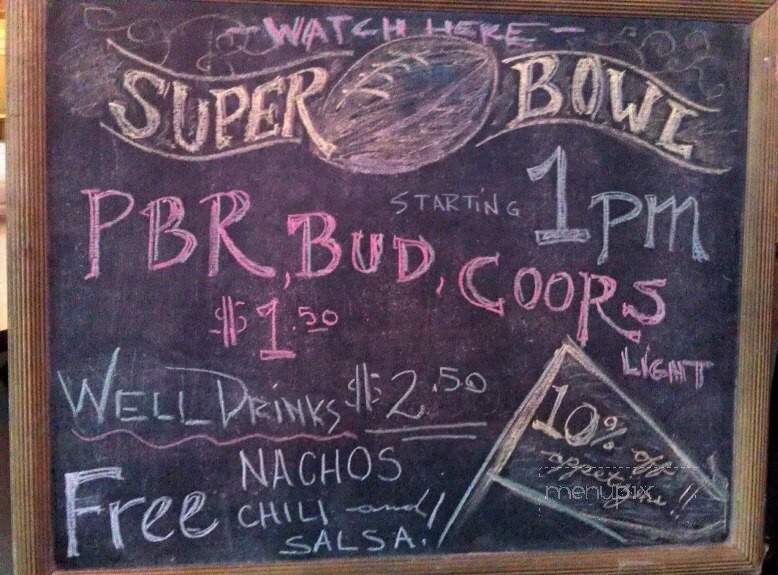 ~ WATCH HERE ~
SUPER BOWL
STARTING 1PM
PBR, BUD, COORS
LIGHT
$1.50
WELL DRINKS $2.50
10% off
Free NACHOS
CHILI and
SALSA.
menupix